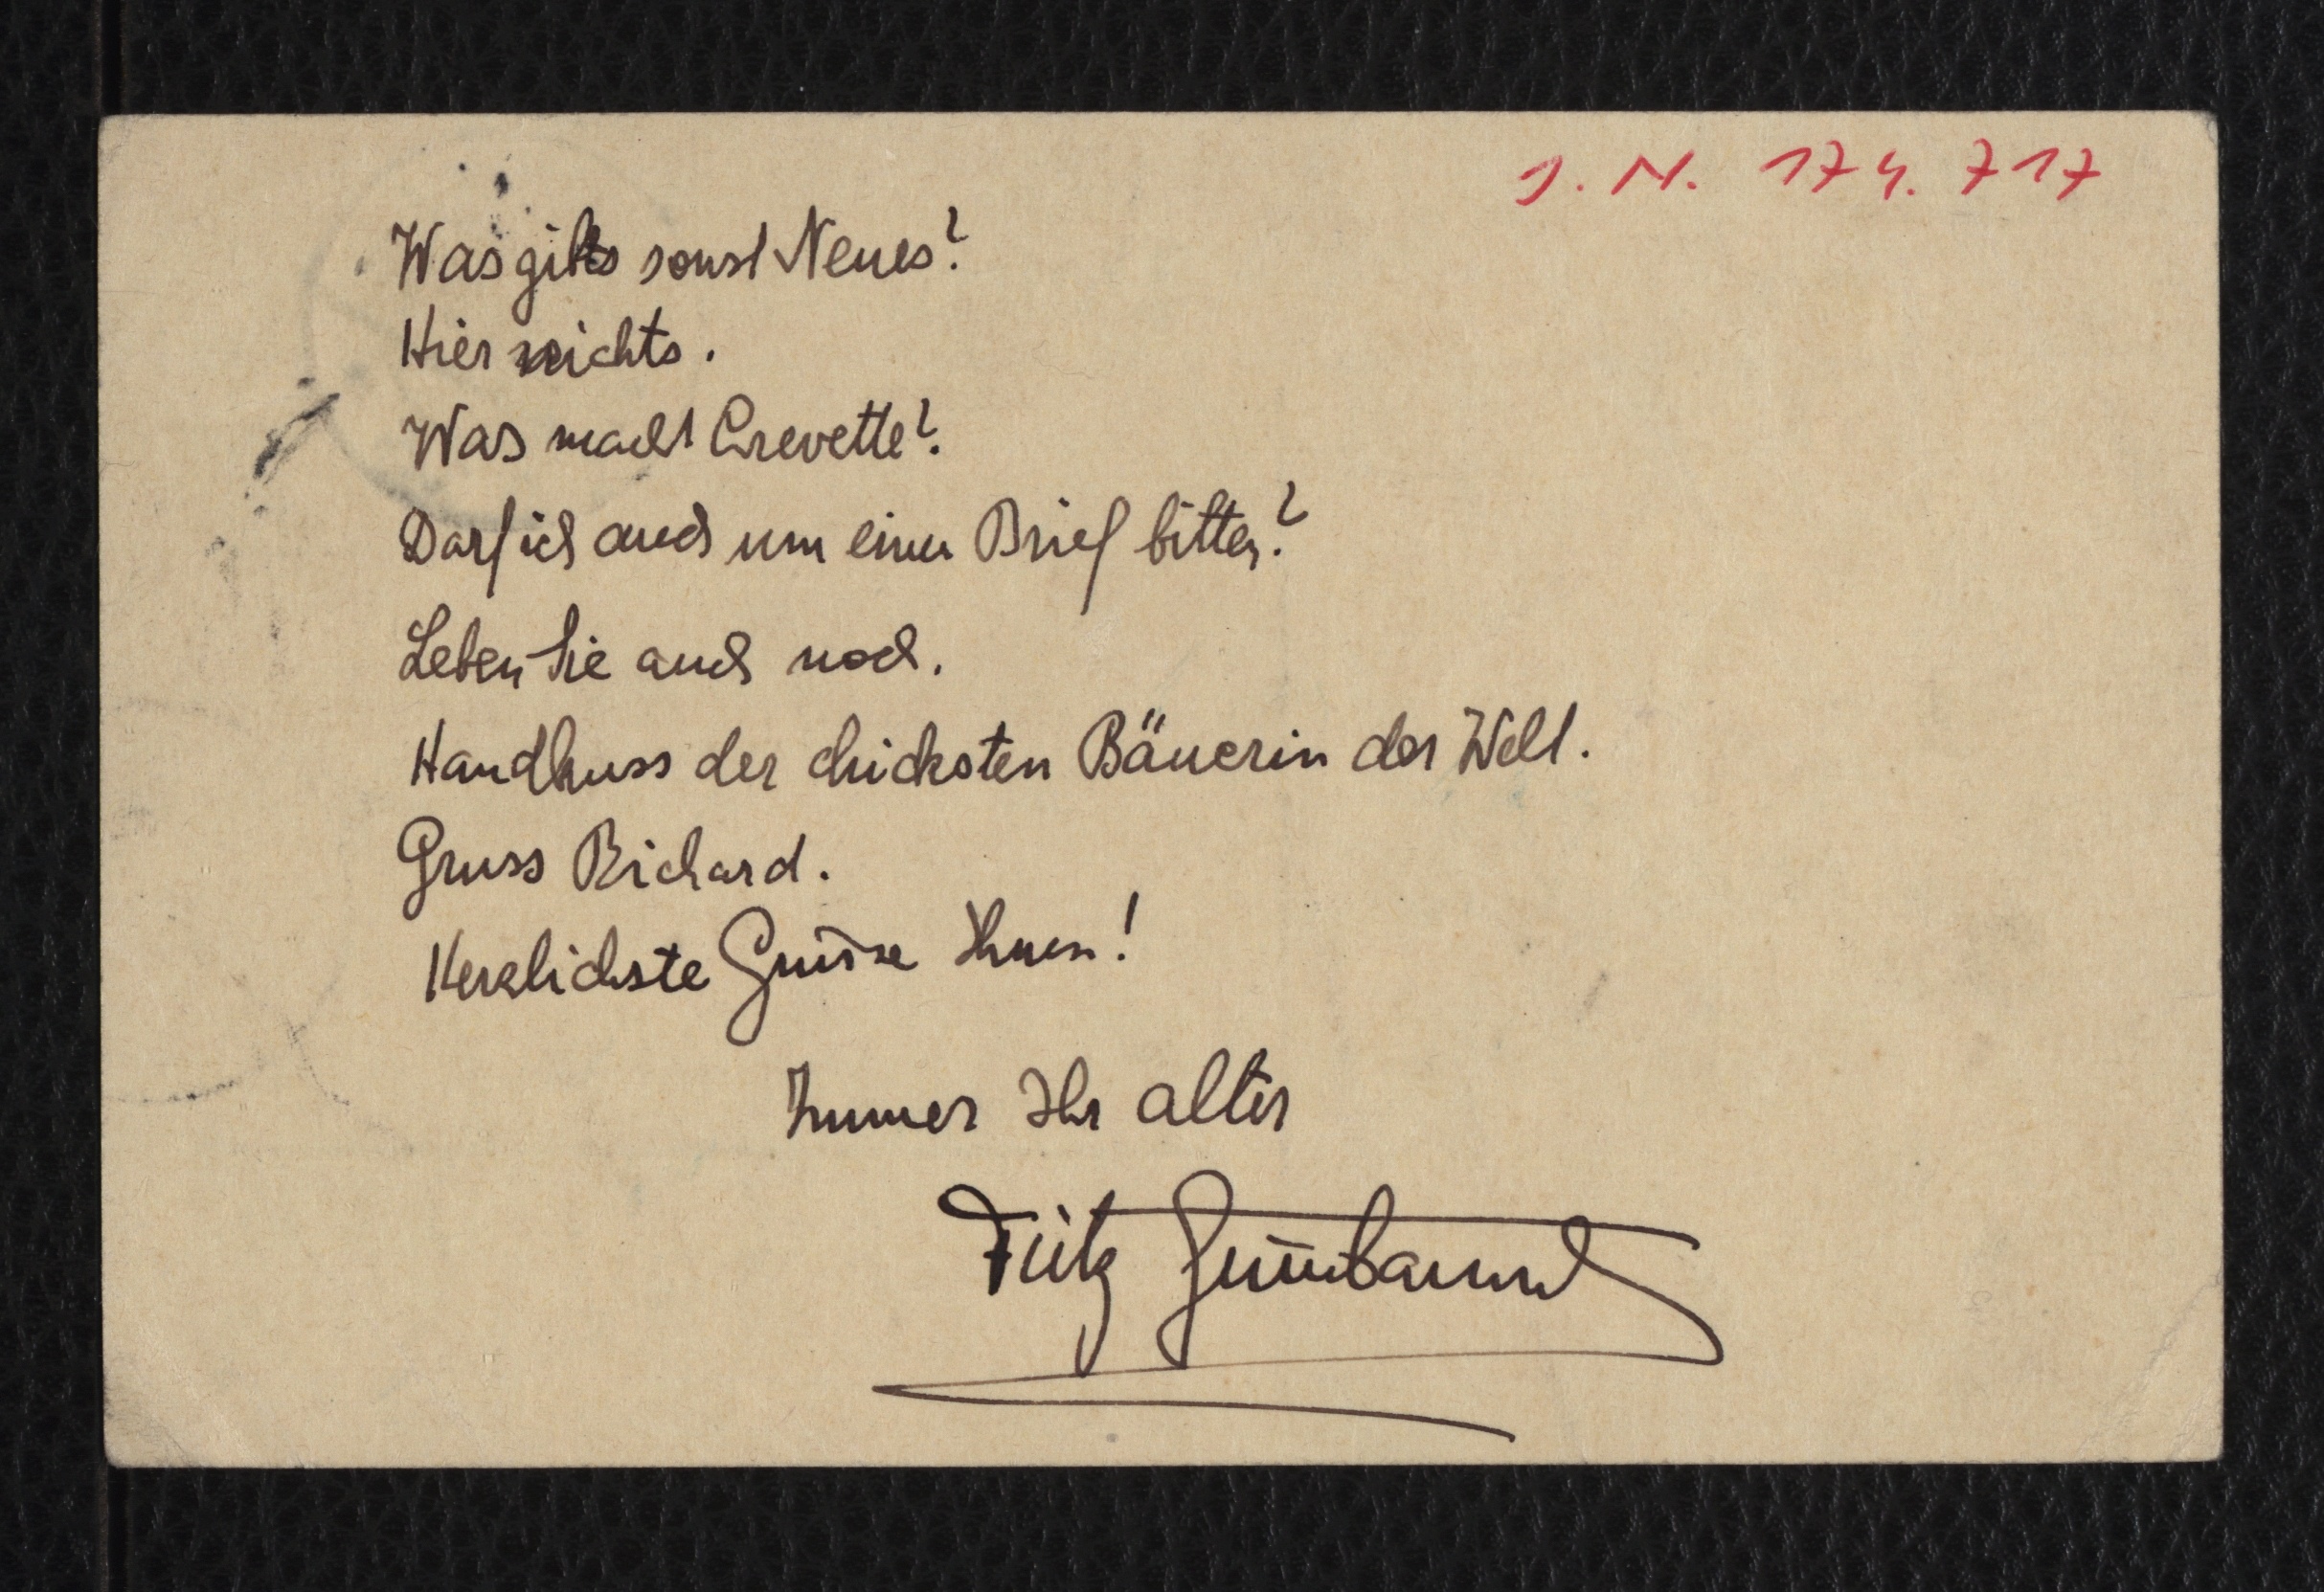 J. N. 174.717
Was gibts sonst Neues?
Hier nichts.
Was macht Crevette?
Darf ich auch um einen Brief bitten?
Leben Sie auch noch.
Handkuss der chicksten Bäuerin der Welt.
Gruss Richard.
Herzlichste Grüsse Ihnen!
Immer Ihr alter
Fritz Grünbaum